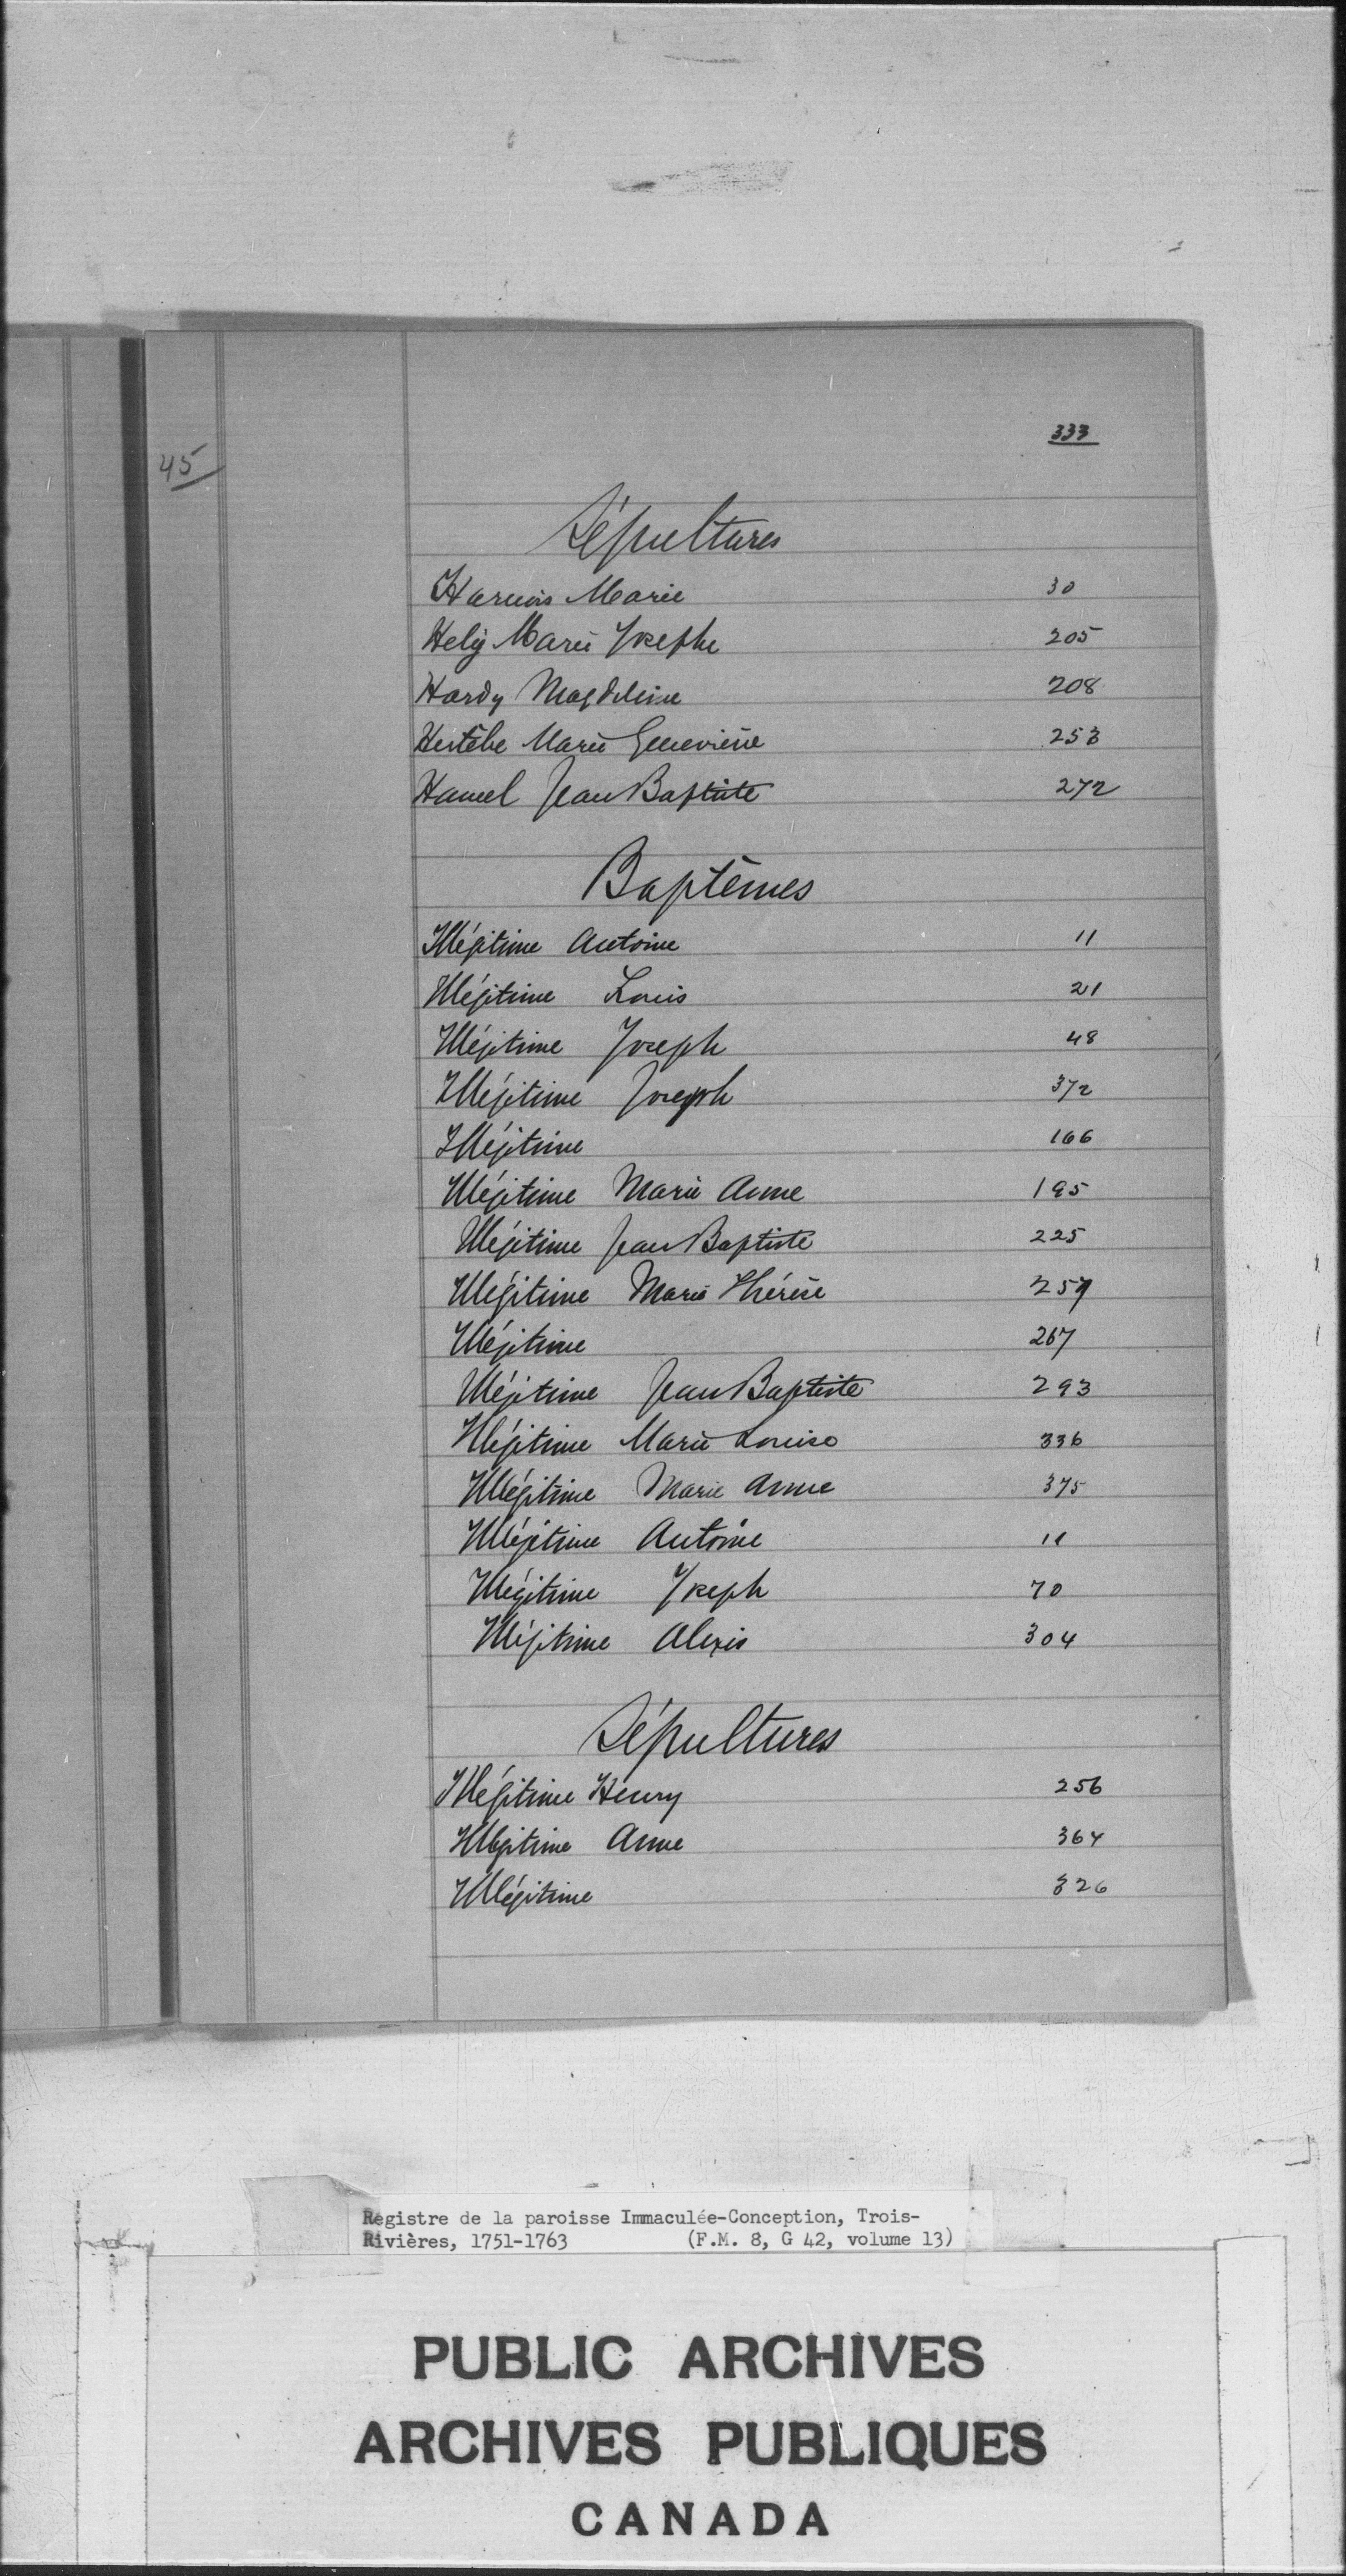 333
45
Sépultures
Harnois Marie 30
Hely Marie Josephe 205
Hardy Magdeleine 208
Hertèbe Marie Geneviève 253
Hamel Jean Baptiste 272
Baptêmes
Illégitime Antoine 11
Illégitime Louis 21
Illégitime Joseph 48
Illégitime Joseph 372
Illégitime 166
Illégitime Marie Anne 195
Illégitime Jean Baptiste 225
Illégitime Marie Thérèse 257
Illégitime 267
Illégitime Jean Baptiste 293
Illégitime Marie Louise 336
Illégitime Marie Anne 375
Illégitime Antoine 11
Illégitime Joseph 70
Illégitime Alexis 304
Sépultures
Illégitime Henry 256
Illégitime Anne 364
Illégitime 326
Registre de la paroisse Immaculée-Conception, Trois-
Rivières, 1751-1763 (F.M. 8, G 42, volume 13)
PUBLIC ARCHIVES
ARCHIVES PUBLIQUES
CANADA